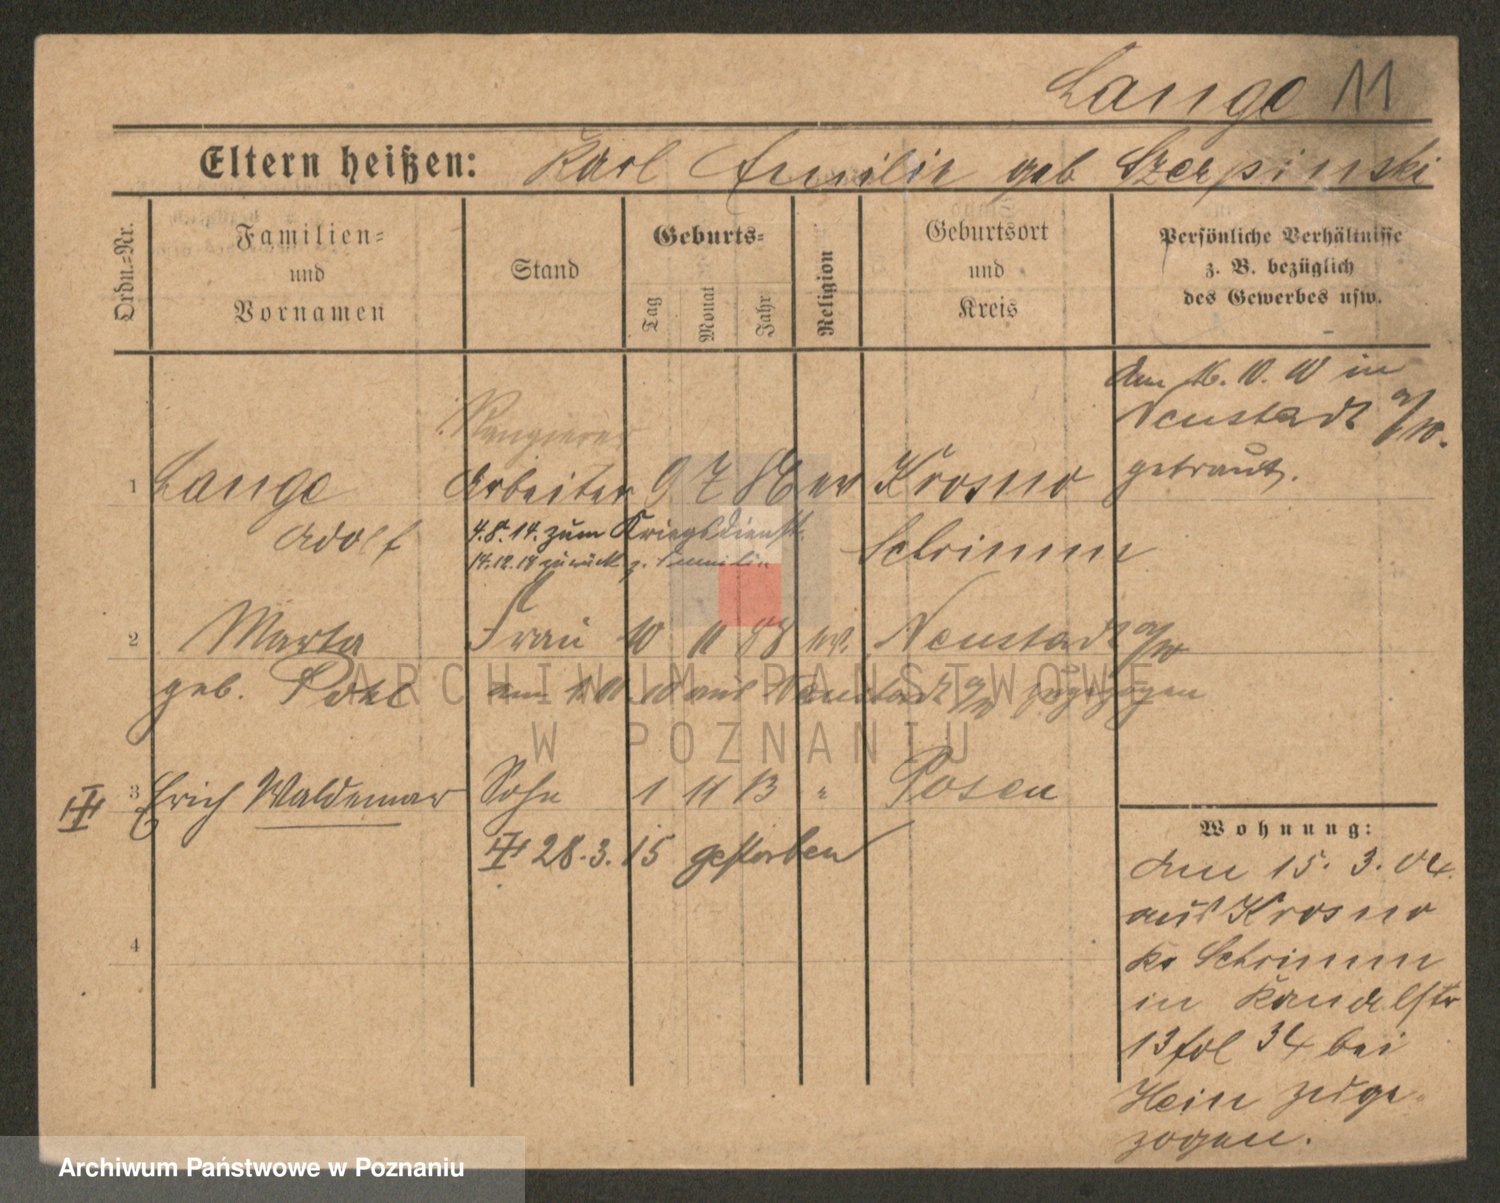 Lange 11
Eltern heißen: Karl Emilie geb Szerpinski
Ordn.-Nr.
Familien- und Vornamen
Stand
Geburts-
Tag
Monat
Jahr
Religion
Geburtsort und Kreis
Persönliche Verhältnisse
z. B. bezüglich
des Gewerbes usw.
Am 16. 10. 10 in
Neustadt a/W.
getraut.
Rangierer
1 Lange Arbeiter 9 7 86 ev Krosno
Adolf 4.8.14. zum Kriegsdienst. Schrimm
14.12.18 zurück z. Familie
2 Marta Frau 10 11 88 ev. Neustadt a/W
geb. Pohl am 1. 11. 10 aus Neustadt a/W zugezogen
3 Erich Waldemar Sohn 1 11 13 " Posen
28.3.15 gestorben
4
Wohnung:
Am 15. 3. 04.
aus Krosno
Kr Schrimm
in
13 fol 34 bei
Hein zuge-
zogen.
ARCHIWUM PAŃSTWOWE
W POZNANIU
Archiwum Państwowe w Poznaniu